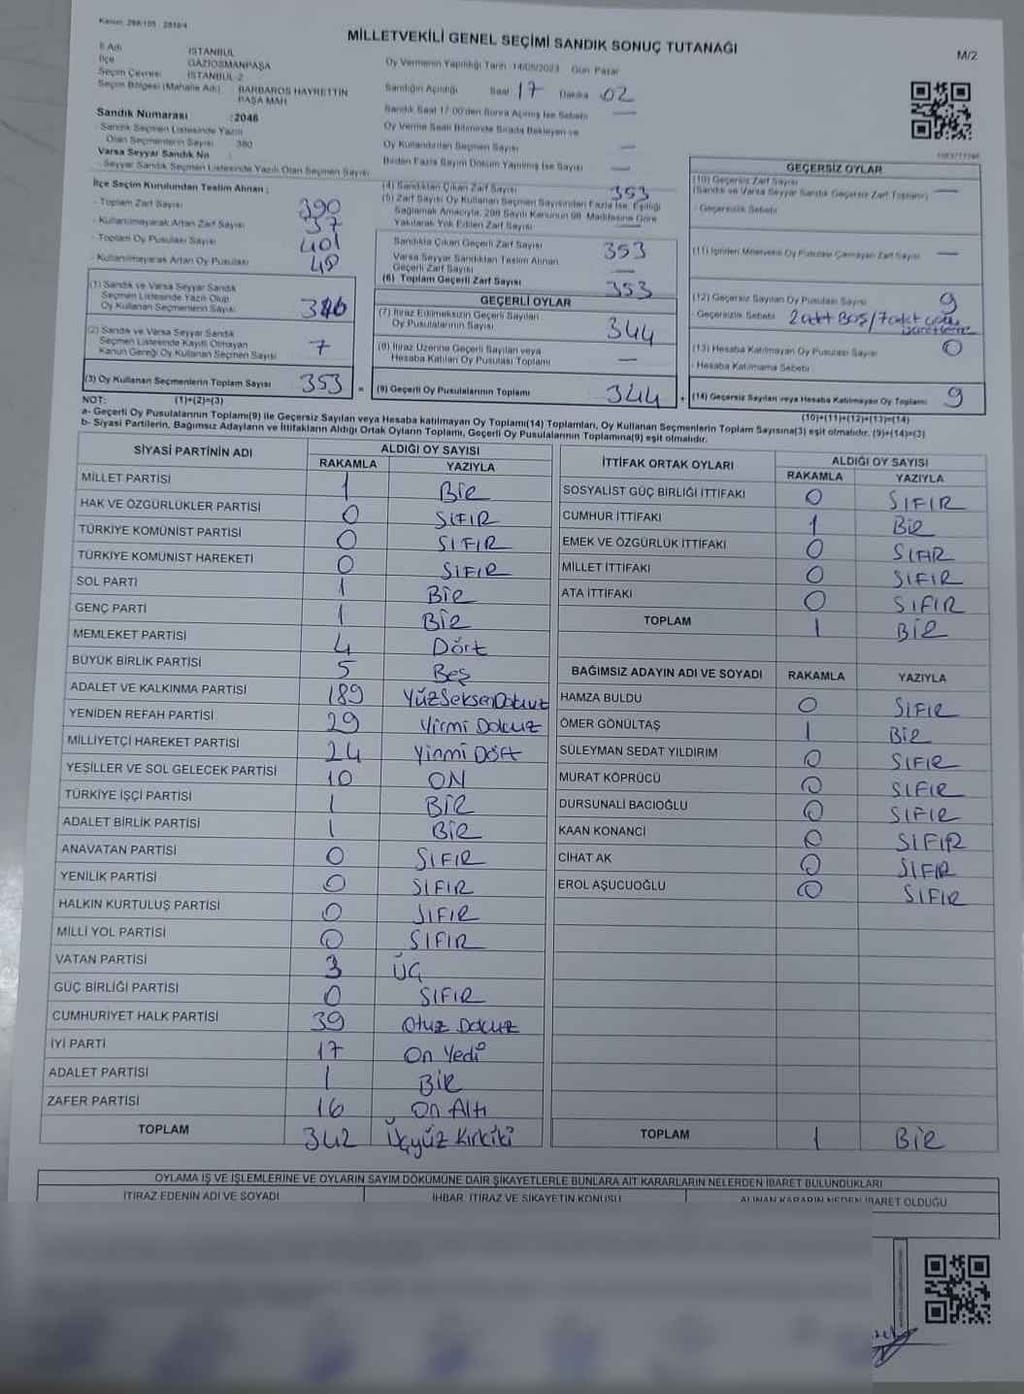 MİLLETVEKİLİ GENEL SEÇİMİ SANDIK SONUÇ TUTANAĞI
M/2
İl Adı İSTANBUL
İlçe GAZİOSMANPAŞA
Seçim Çevresi İSTANBUL-2
Seçim Bölgesi (Mahalle Adı) BARBAROS HAYRETTİN
PAŞA MAH
Sandık Numarası :2046
Sandık Seçmen Listesinde Yazılı
Olan Seçmenlerin Sayısı 380
Varsa Seyyar Sandık No :
Seyyar Sandık Seçmen Listesinde Yazılı Olan Seçmen Sayısı
Oy Vermenin Yapıldığı Tarih :14/05/2023 Gün Pazar
Sandığın Açıldığı Saat 17 Dakika 02
Sandık Saat 17:00'den Sonra Açılmış İse Sebebi —
Oy Verme Saati Bitiminde Sırada Bekleyen ve
Oy Kullandırılan Seçmen Sayısı —
Birden Fazla Sayım Döküm Yapılmış İse Sayısı —
İlçe Seçim Kurulundan Teslim Alınan :
- Toplam Zarf Sayısı 390
- Kullanılmayarak Artan Zarf Sayısı 37
- Toplam Oy Pusulası Sayısı 401
- Kullanılmayarak Artan Oy Pusulası 48
(1) Sandık ve Varsa Seyyar Sandık
Seçmen Listesinde Yazılı Olup
Oy Kullanan Seçmenlerin Sayısı 346
(2) Sandık ve Varsa Seyyar Sandık
Seçmen Listesinde Kayıtlı Olmayan
Kanun Gereği Oy Kullanan Seçmen Sayısı 7
(3) Oy Kullanan Seçmenlerin Toplam Sayısı 353 =
(4) Sandıktan Çıkan Zarf Sayısı 353
(5) Zarf Sayısı Oy Kullanan Seçmen Sayısından Fazla İse, Eşitliği
Sağlamak Amacıyla, 298 Sayılı Kanunun 98. Maddesine Göre
Yakılarak Yok Edilen Zarf Sayısı —
Sandıkta Çıkan Geçerli Zarf Sayısı 353
Varsa Seyyar Sandıktan Teslim Alınan
Geçerli Zarf Sayısı —
(6) Toplam Geçerli Zarf Sayısı 353
GEÇERLİ OYLAR
(7) İtiraz Edilmeksizin Geçerli Sayılan
Oy Pusulalarının Sayısı 344
(8) İtiraz Üzerine Geçerli Sayılan veya
Hesaba Katılan Oy Pusulası Toplamı —
(9) Geçerli Oy Pusulalarının Toplamı 344 +
GEÇERSİZ OYLAR
(10) Geçersiz Zarf Sayısı
(Sandık ve Varsa Seyyar Sandık Geçersiz Zarf Toplamı) —
- Geçersizlik Sebebi
(11) İçinden Milletvekili Oy Pusulası Çıkmayan Zarf Sayısı —
(12) Geçersiz Sayılan Oy Pusulası Sayısı 9
- Geçersizlik Sebebi 2 adet BOŞ/7 adet
(13) Hesaba Katılmayan Oy Pusulası Sayısı 0
- Hesaba Katılmama Sebebi
(14) Geçersiz Sayılan veya Hesaba Katılmayan Oy Toplamı 9
NOT: (1)+(2)=(3) (10)+(11)+(12)+(13)=(14)
a- Geçerli Oy Pusulalarının Toplamı(9) ile Geçersiz Sayılan veya Hesaba katılmayan Oy Toplamı(14) Toplamları, Oy Kullanan Seçmenlerin Toplam Sayısına(3) eşit olmalıdır. (9)+(14)=(3)
b- Siyasi Partilerin, Bağımsız Adayların ve İttifakların Aldığı Ortak Oyların Toplamı, Geçerli Oy Pusulalarının Toplamına(9) eşit olmalıdır.
SİYASİ PARTİNİN ADI ALDIĞI OY SAYISI
RAKAMLA YAZIYLA
MİLLET PARTİSİ 1 Bir
HAK VE ÖZGÜRLÜKLER PARTİSİ 0 SIFIR
TÜRKİYE KOMÜNİST PARTİSİ 0 SIFIR
TÜRKİYE KOMÜNİST HAREKETİ 0 SIFIR
SOL PARTİ 1 Bir
GENÇ PARTİ 1 Bir
MEMLEKET PARTİSİ 4 Dört
BÜYÜK BİRLİK PARTİSİ 5 Beş
ADALET VE KALKINMA PARTİSİ 189 YüzSeksenDokuz
YENİDEN REFAH PARTİSİ 29 Yirmi Dokuz
MİLLİYETÇİ HAREKET PARTİSİ 24 Yirmi Dört
YEŞİLLER VE SOL GELECEK PARTİSİ 10 ON
TÜRKİYE İŞÇİ PARTİSİ 1 BİR
ADALET BİRLİK PARTİSİ 1 Bir
ANAVATAN PARTİSİ 0 SIFIR
YENİLİK PARTİSİ 0 SIFIR
HALKIN KURTULUŞ PARTİSİ 0 SIFIR
MİLLİ YOL PARTİSİ 0 SIFIR
VATAN PARTİSİ 3 ÜÇ
GÜÇ BİRLİĞİ PARTİSİ 0 SIFIR
CUMHURİYET HALK PARTİSİ 39 Otuz Dokuz
İYİ PARTİ 17 On Yedi
ADALET PARTİSİ 1 Bir
ZAFER PARTİSİ 16 On Altı
TOPLAM 342 Üçyüz Kırkiki
İTTİFAK ORTAK OYLARI ALDIĞI OY SAYISI
RAKAMLA YAZIYLA
SOSYALİST GÜÇ BİRLİĞİ İTTİFAKI 0 SIFIR
CUMHUR İTTİFAKI 1 Bir
EMEK VE ÖZGÜRLÜK İTTİFAKI 0 SIFIR
MİLLET İTTİFAKI 0 SIFIR
ATA İTTİFAKI 0 SIFIR
TOPLAM 1 Bir
BAĞIMSIZ ADAYIN ADI VE SOYADI RAKAMLA YAZIYLA
HAMZA BULDU 0 SIFIR
ÖMER GÖNÜLTAŞ 1 Bir
SÜLEYMAN SEDAT YILDIRIM 0 SIFIR
MURAT KÖPRÜCÜ 0 SIFIR
DURSUNALİ BACIOĞLU 0 SIFIR
KAAN KONANCİ 0 SIFIR
CİHAT AK 0 SIFIR
EROL AŞUCUOĞLU 0 SIFIR
TOPLAM 1 Bir
OYLAMA İŞ VE İŞLEMLERİNE VE OYLARIN SAYIM DÖKÜMÜNE DAİR ŞİKAYETLERLE BUNLARA AİT KARARLARIN NELERDEN İBARET BULUNDUKLARI
İTİRAZ EDENİN ADI VE SOYADI İHBAR, İTİRAZ VE ŞİKAYETİN KONUSU ALINAN KARARIN NEDEN İBARET OLDUĞU